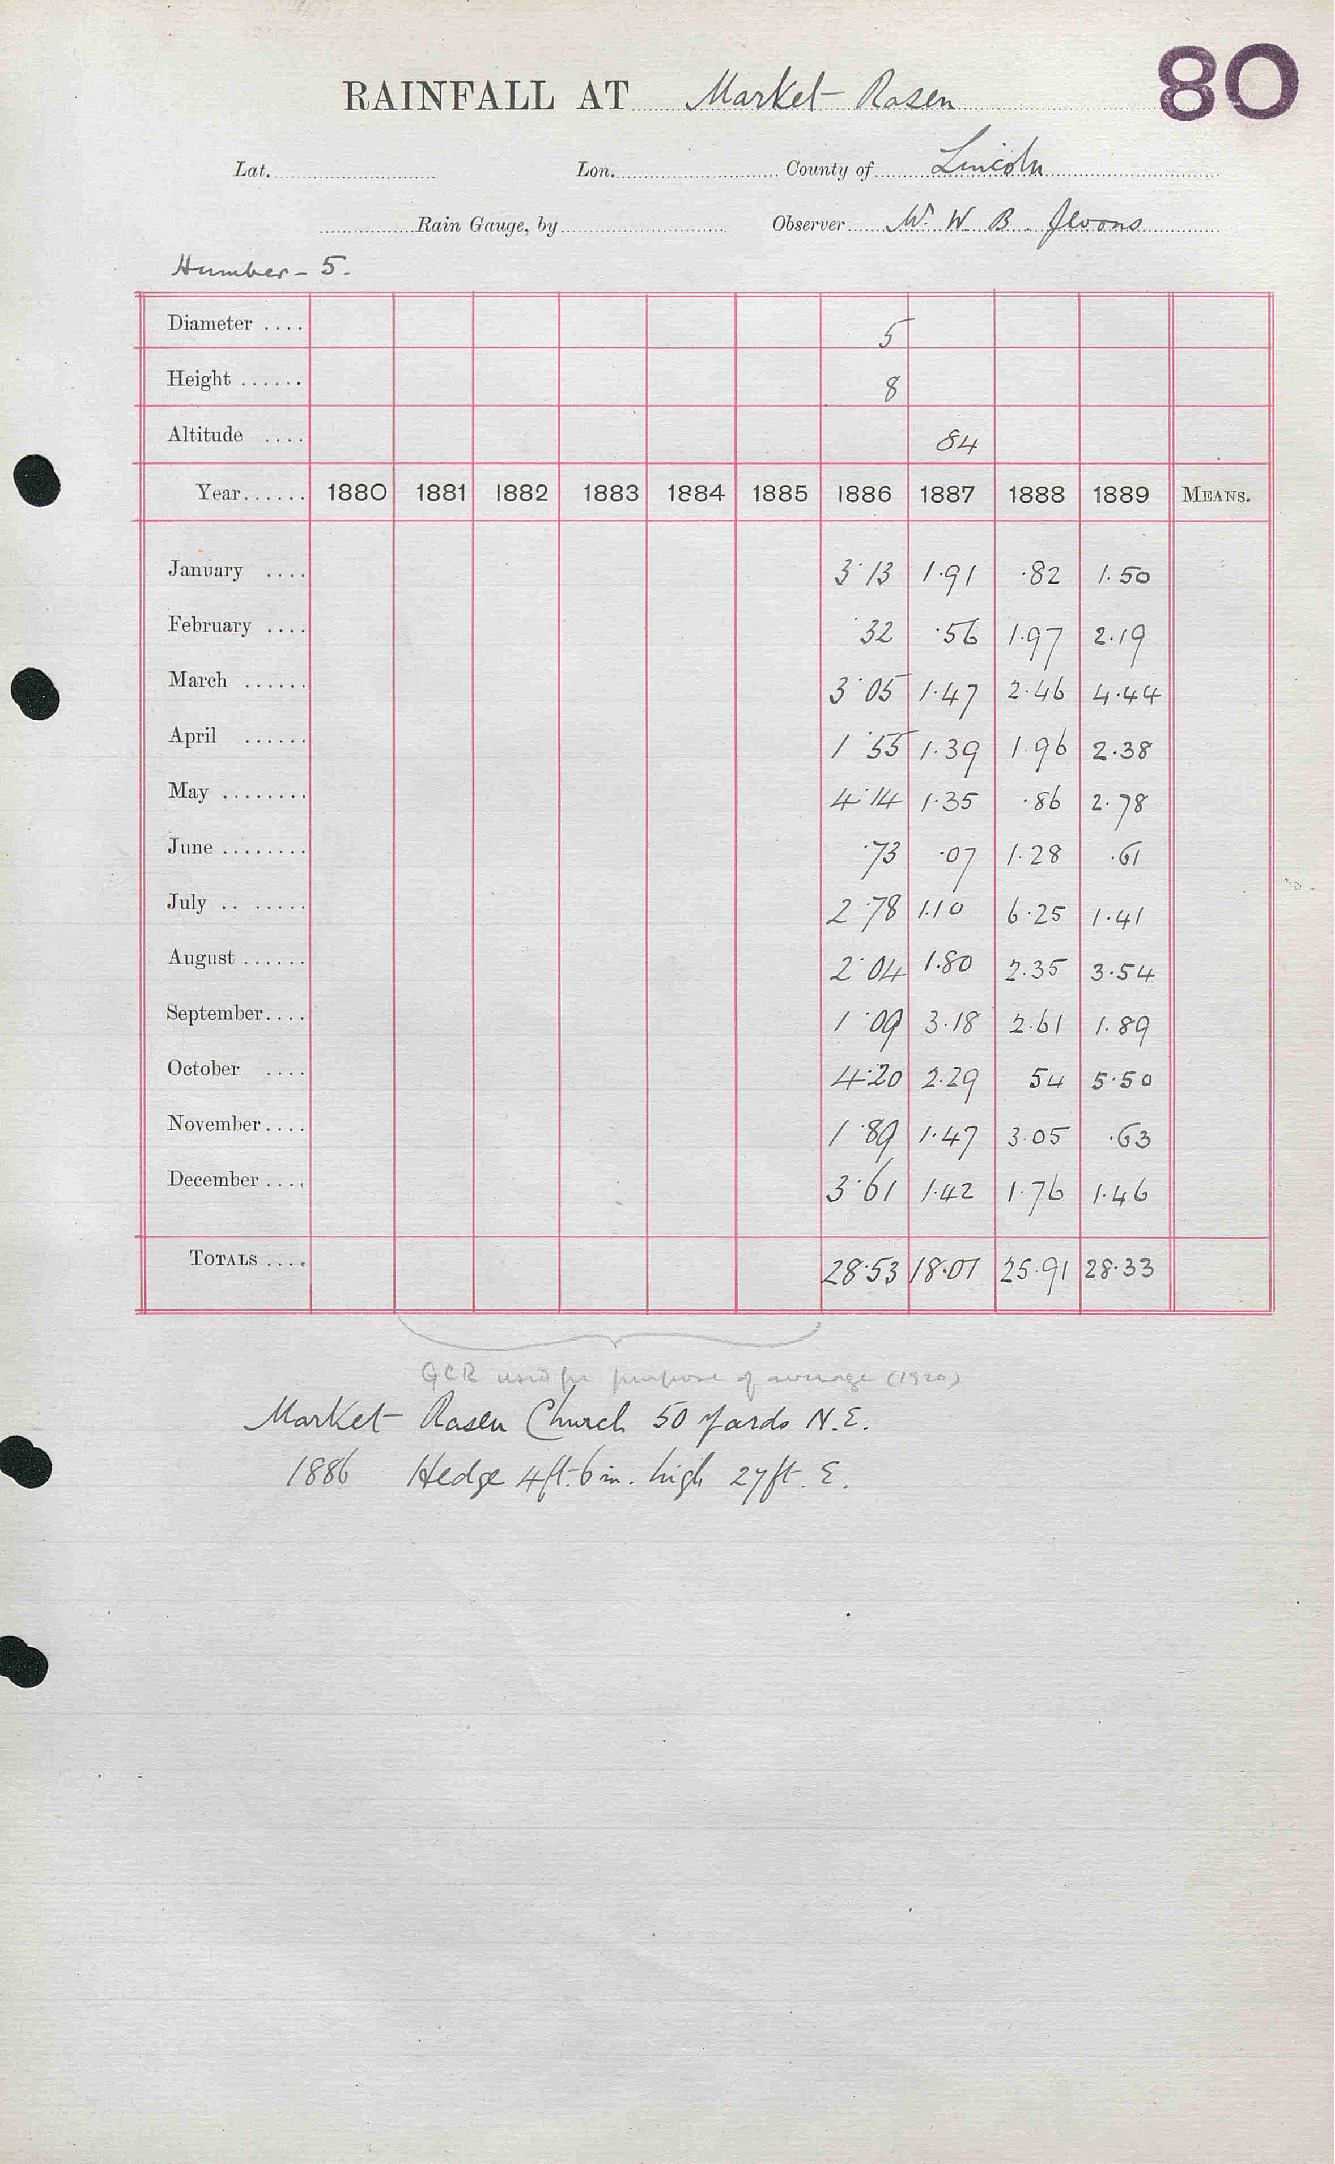 80
RAINFALL AT Market Rasen
Lat. Lon. County of Lincoln
Rain Gauge, by Observer W. W. B. Jevons
Humber - 5.
Diameter .... 5
Height ...... 8
Altitude .... 84
Year...... 1880 1881 1882 1883 1884 1885 1886 1887 1888 1889 MEANS.
January .... 3.13 1.91 .82 1.50
February .... .32 .56 1.97 2.19
March ...... 3.05 1.47 2.46 4.44
April ...... 1.55 1.39 1.96 2.38
May ........ 4.14 1.35 .86 2.78
June ........ .73 .07 1.28 .61
July .. ..... 2.78 1.10 6.25 1.41
August ...... 2.04 1.80 2.35 3.54
September.... 1.09 3.18 2.61 1.89
October .... 4.20 2.29 54 5.50
November.... 1.89 1.47 3.05 .63
December .... 3.61 1.42 1.76 1.46
TOTALS .... 28.53 18.01 25.91 28.33
GCR used for purpose of average (1920)
Market Rasen Church 50 yards N.E.
1886 Hedge 4ft. 6in. high 27ft. E.